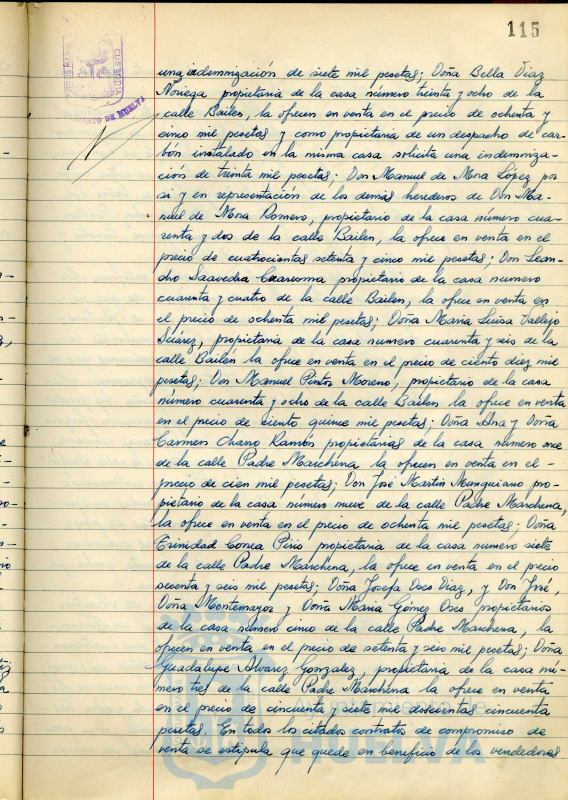 115
una indemnización de siete mil pesetas; Doña Bella Diaz
Noriega propietaria de la casa número treinta y ocho de la
calle Bailen, la ofrecen en venta en el precio de ochenta y
cinco mil pesetas y como propietaria de un despacho de car-
bón instalado en la misma casa solicita una indemniza-
ción de treinta mil pesetas; Don Manuel de Mora López por
si y en representación de los demás herederos de Don Ma-
nuel de Mora Romero, propietario de la casa número cua-
renta y dos de la calle Bailen, la ofrece en venta en el
precio de cuatrocientas setenta y cinco mil pesetas; Don Lean-
dro Saavedra Cuaresma propietario de la casa número
cuarenta y cuatro de la calle Bailen, la ofrece en venta en
el precio de ochenta mil pesetas; Doña Maria Luisa Vallejo
Suárez, propietaria de la casa numero cuarenta y seis de la
calle Bailén la ofrece en venta en el precio de ciento diez mil
pesetas; Don Manuel Pintos Moreno, propietario de la casa
número cuarenta y ocho de la calle Bailén la ofrece en venta
en el precio de ciento quince mil pesetas; Doña Ana y Doña
Carmen Charro Ramos propietarias de la casa número once
de la calle Padre Marchena la ofrecen en venta en el -
precio de cien mil pesetas; Don José Martin Munguiano pro-
pietario de la casa número nueve de la calle Padre Marchena,
la ofrece en venta en el precio de ochenta mil pesetas; Doña
Trinidad Correa propietaria de la casa numero siete
de la calle Padre Marchena, la ofrece en venta en el precio
sesenta y seis mil pesetas; Doña Josefa Oses Diaz, y Don José,
Doña Montemayor y Doña Maria Gómez Oses propietarios
de la casa número cinco de la calle Padre Marchena, la
ofrecen en venta en el precio de setenta y seis mil pesetas; Doña
Guadalupe Alvarez Gonzalez, propietaria de la casa nú-
mero tres de la calle Padre Marchena la ofrece en venta
en el precio de cincuenta y siete mil doscientas cincuenta
pesetas. En todos los citados contratos de compromiso de
venta se estipula que quede en beneficio de los vendedores
HUELVA